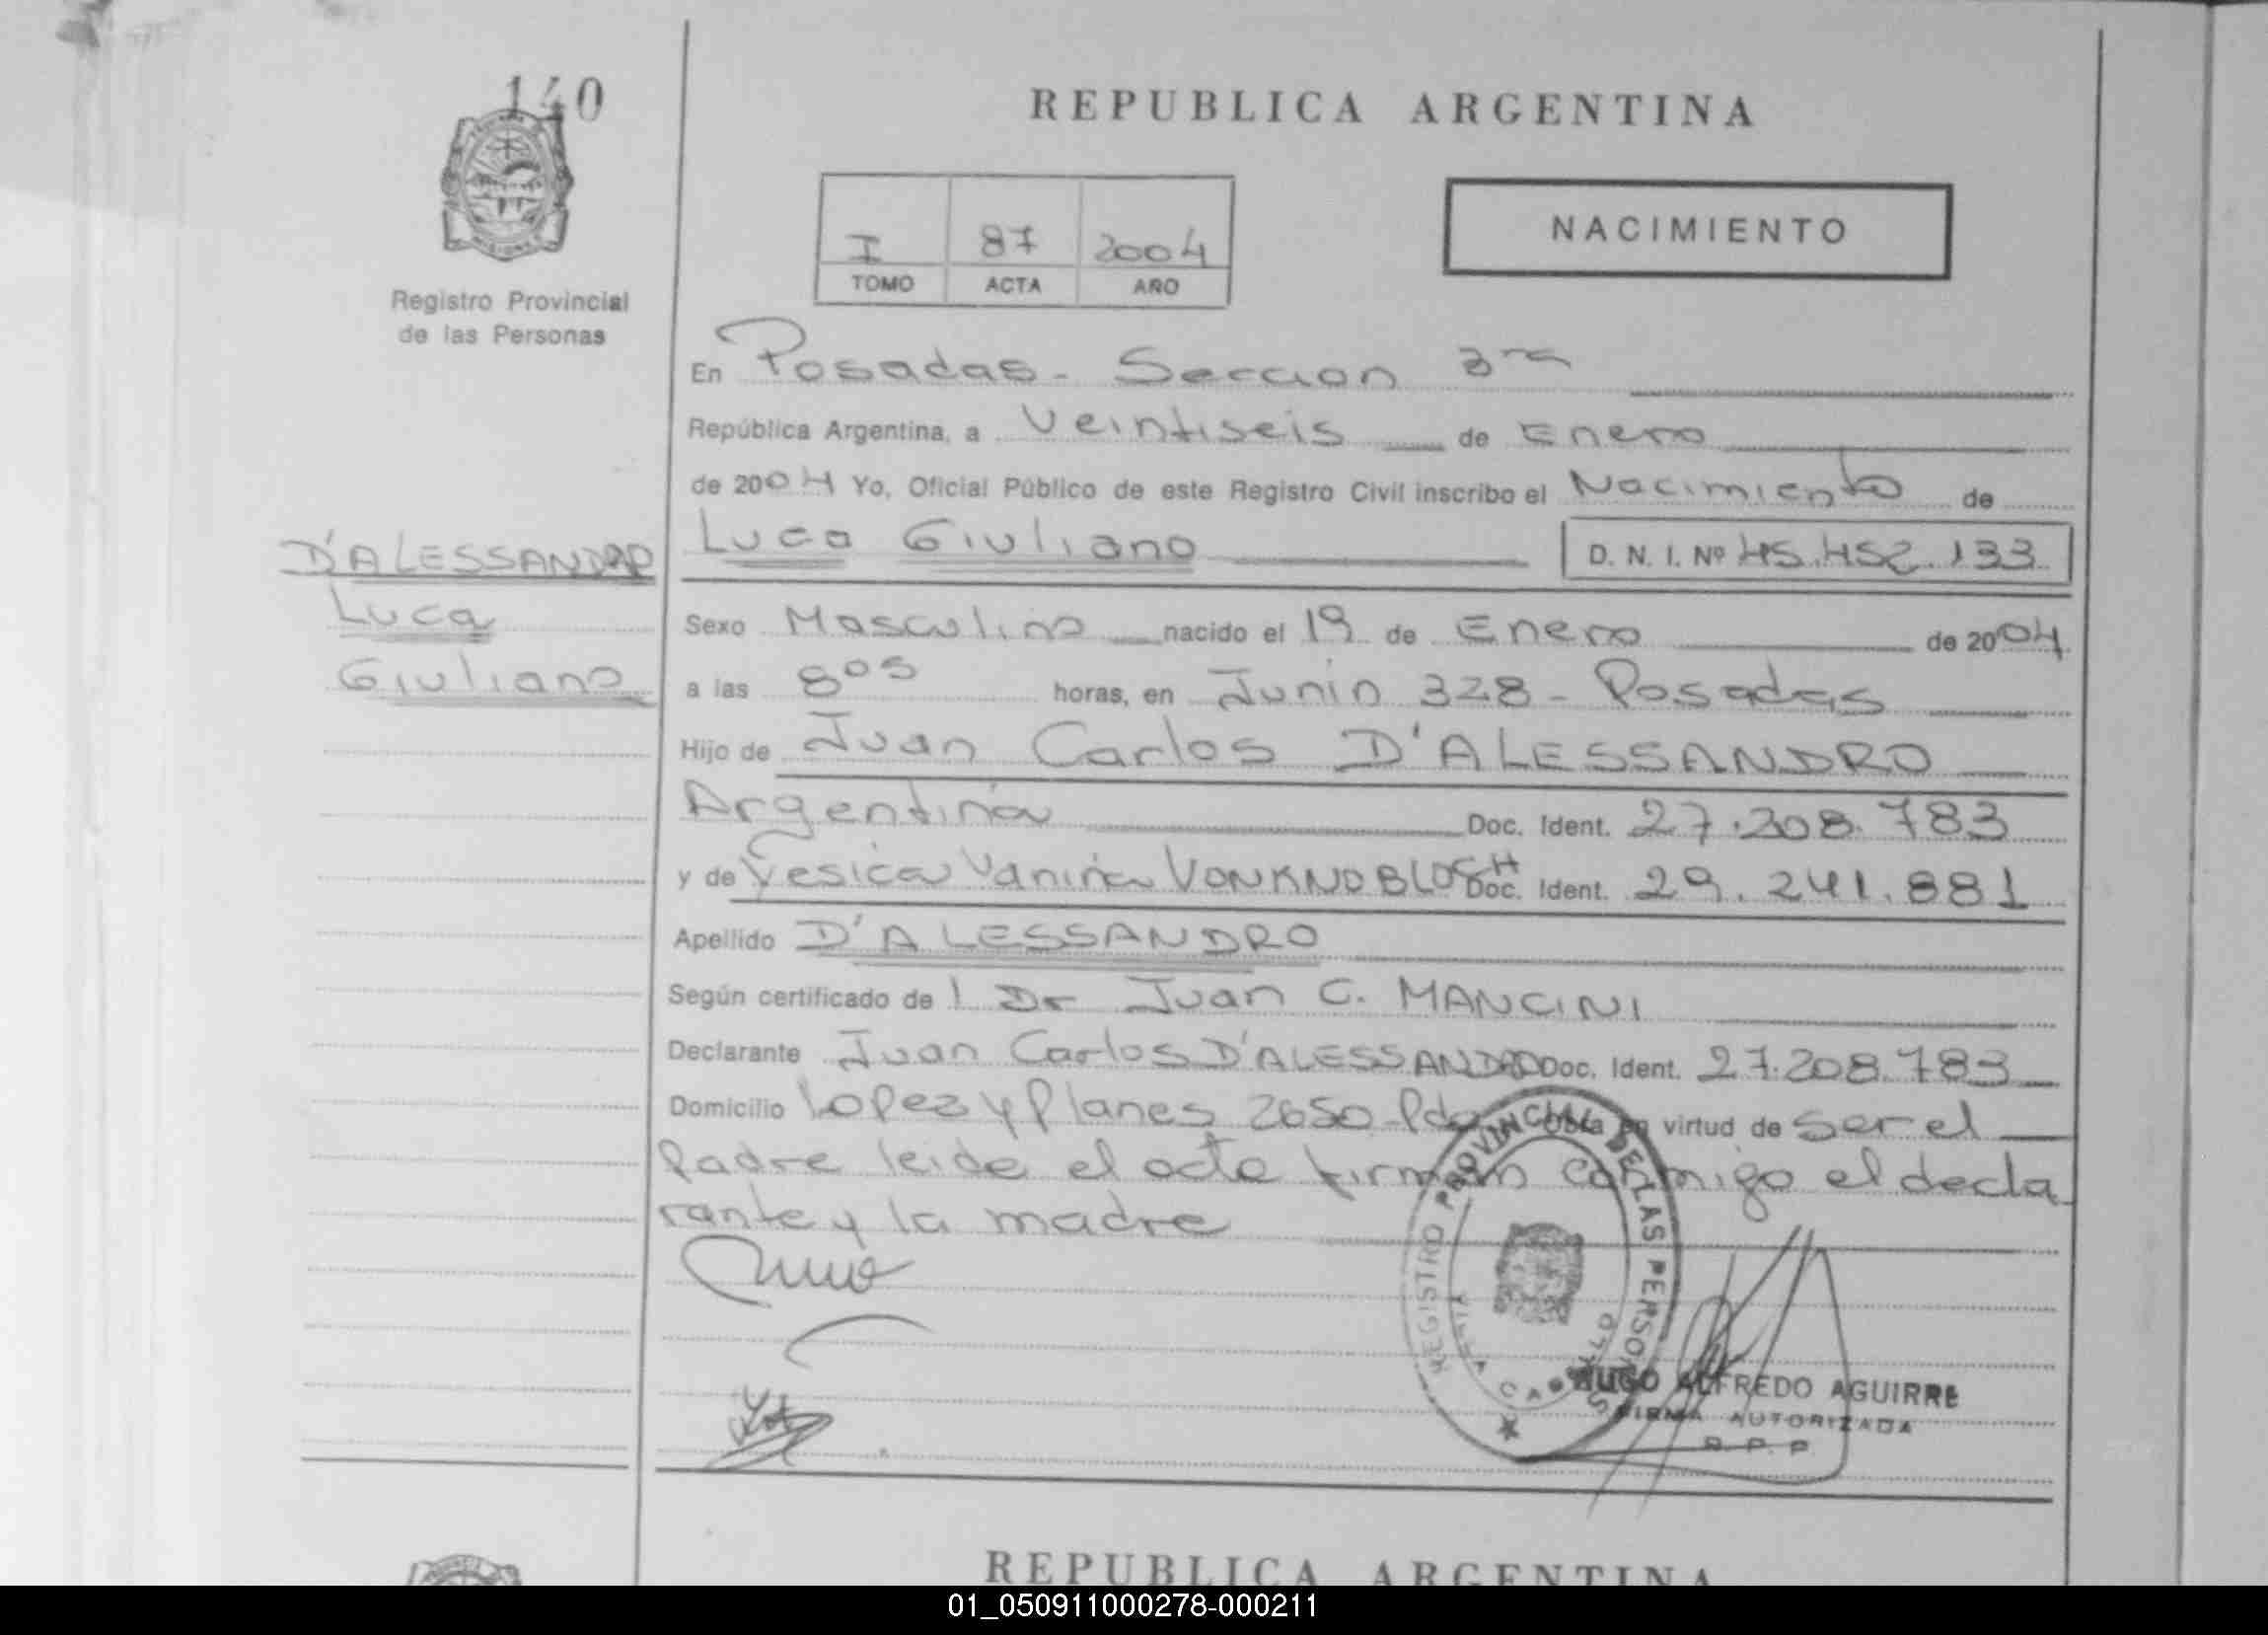 140
REPUBLICA ARGENTINA
Registro Provincial
de las Personas
I 87 2004
TOMO ACTA AÑO
NACIMIENTO
En Posadas - Seccion 3ra
República Argentina, a Veintiseis de Enero
de 2004 Yo, Oficial Público de este Registro Civil inscribo el Nacimiento de
Luca Giuliano D. N. I. Nº 45.452.133
D'ALESSANDRO
Luca
Giuliano
Sexo Masculino nacido el 19 de Enero de 2004
a las 8 05 horas, en Junin 328 - Posadas
Hijo de Juan Carlos D'ALESSANDRO
Argentina Doc. Ident. 27.208.783
y de Yesica Vanina VONKNOBLOCH Doc. Ident. 29.241.881
Apellido D'ALESSANDRO
Según certificado de l Dr Juan C. MANCINI
Declarante Juan Carlos D'ALESSANDRO Doc. Ident. 27.208.783
Domicilio Lopez y Planes 2650 - Pdas Obra en virtud de ser el
Padre leida el acta firman conmigo el decla
rante y la madre
REGISTRO PROVINCIAL DE LAS PERSONAS
HUGO ALFREDO AGUIRRE
FIRMA AUTORIZADA
R. P. P.
REPUBLICA ARGENTINA
01_050911000278-000211